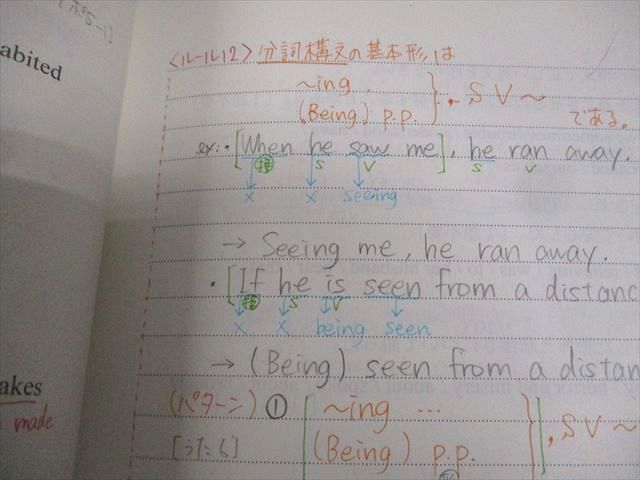 abited
<ルール12> 分詞構文の基本形は
~ing
(Being) p.p. }, S V ~ である。
ex: ・[When he saw me], he ran away.
接 S V S V
× × seeing
→ Seeing me, he ran away.
・[If he is seen from a distanc
接 S V
× × being seen
→ (Being) seen from a distan
akes
made
(パターン) ① [~ing ...
(Being) p.p.], S V ~